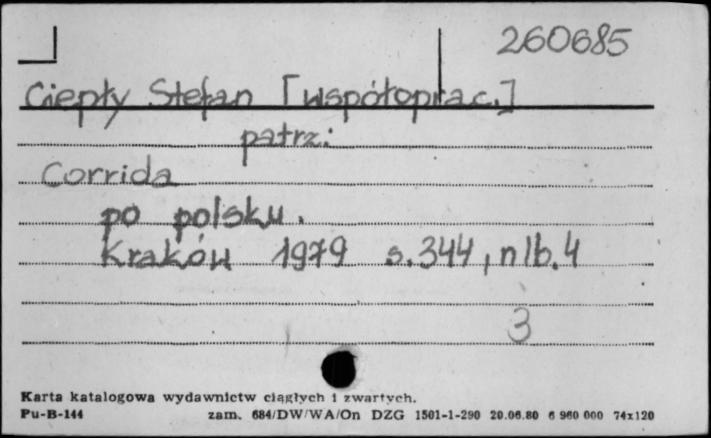 260685
Ciepły Stefan [współoprac.]
patrz:
Corrida
po polsku.
Kraków 1979 s. 344, nlb. 4
3
Karta katalogowa wydawnictw ciągłych i zwartych.
Pu-B-144 zam. 684/DW/WA/On DZG 1501-1-290 20.06.80 6 960 000 74x120